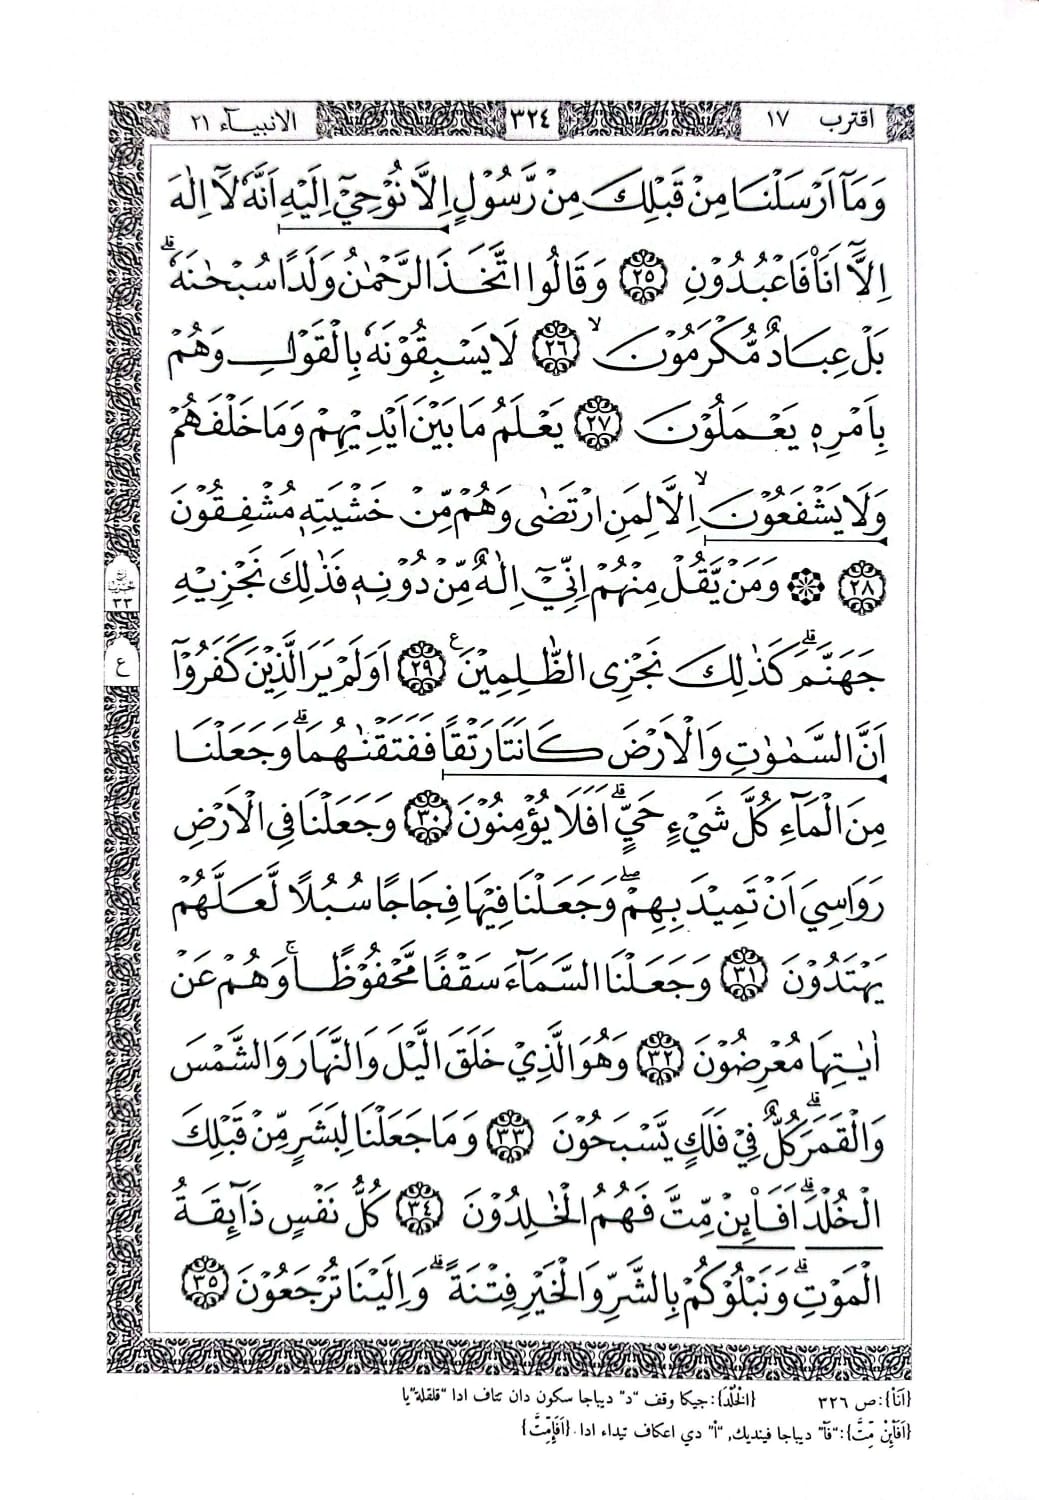 اقترب ١٧
٣٢٤
الانبيآء ٢١
وَمَآ اَرْسَلْنَا مِنْ قَبْلِكَ مِنْ رَّسُوْلٍ اِلَّا نُوْحِيْٓ اِلَيْهِ اَنَّهٗ لَآ اِلٰهَ
اِلَّآ اَنَا۠ فَاعْبُدُوْنِ ٢٥ وَقَالُوا اتَّخَذَ الرَّحْمٰنُ وَلَدًا سُبْحٰنَهٗ ۗ
بَلْ عِبَادٌ مُّكْرَمُوْنَ ۙ ٢٦ لَا يَسْبِقُوْنَهٗ بِالْقَوْلِ وَهُمْ
بِاَمْرِهٖ يَعْمَلُوْنَ ٢٧ يَعْلَمُ مَا بَيْنَ اَيْدِيْهِمْ وَمَا خَلْفَهُمْ
وَلَا يَشْفَعُوْنَ ۙ اِلَّا لِمَنِ ارْتَضٰى وَهُمْ مِّنْ خَشْيَتِهٖ مُشْفِقُوْنَ
٢٨ ۞ وَمَنْ يَّقُلْ مِنْهُمْ اِنِّيْٓ اِلٰهٌ مِّنْ دُوْنِهٖ فَذٰلِكَ نَجْزِيْهِ
جَهَنَّمَ ۗ كَذٰلِكَ نَجْزِى الظّٰلِمِيْنَ ࣖ ٢٩ اَوَلَمْ يَرَ الَّذِيْنَ كَفَرُوْٓا
اَنَّ السَّمٰوٰتِ وَالْاَرْضَ كَانَتَا رَتْقًا فَفَتَقْنٰهُمَا ۗ وَجَعَلْنَا
مِنَ الْمَآءِ كُلَّ شَيْءٍ حَيٍّ ۗ اَفَلَا يُؤْمِنُوْنَ ٣٠ وَجَعَلْنَا فِى الْاَرْضِ
رَوَاسِيَ اَنْ تَمِيْدَ بِهِمْ ۖ وَجَعَلْنَا فِيْهَا فِجَاجًا سُبُلًا لَّعَلَّهُمْ
يَهْتَدُوْنَ ٣١ وَجَعَلْنَا السَّمَآءَ سَقْفًا مَّحْفُوْظًا ۚ وَهُمْ عَنْ
اٰيٰتِهَا مُعْرِضُوْنَ ٣٢ وَهُوَ الَّذِيْ خَلَقَ الَّيْلَ وَالنَّهَارَ وَالشَّمْسَ
وَالْقَمَرَ ۗ كُلٌّ فِيْ فَلَكٍ يَّسْبَحُوْنَ ٣٣ وَمَا جَعَلْنَا لِبَشَرٍ مِّنْ قَبْلِكَ
الْخُلْدَ ۗ اَفَا۟ىِٕنْ مِّتَّ فَهُمُ الْخٰلِدُوْنَ ٣٤ كُلُّ نَفْسٍ ذَآىِٕقَةُ
الْمَوْتِ ۗ وَنَبْلُوْكُمْ بِالشَّرِّ وَالْخَيْرِ فِتْنَةً ۗ وَاِلَيْنَا تُرْجَعُوْنَ ٣٥
٣٣
ع
{اَنَا۠}: ص ٣٢٦ {الْخُلْدَ}: جيكا وقف "د" ديباجا سكون دان تتاف ادا "قلقلة"ڽا
{اَفَا۟ىِٕنْ مِّتَّ}: "فآ" ديباجا فينديك, "ا" دي اعكاف تيداء ادا. {اَفَاِمِّتَّ}